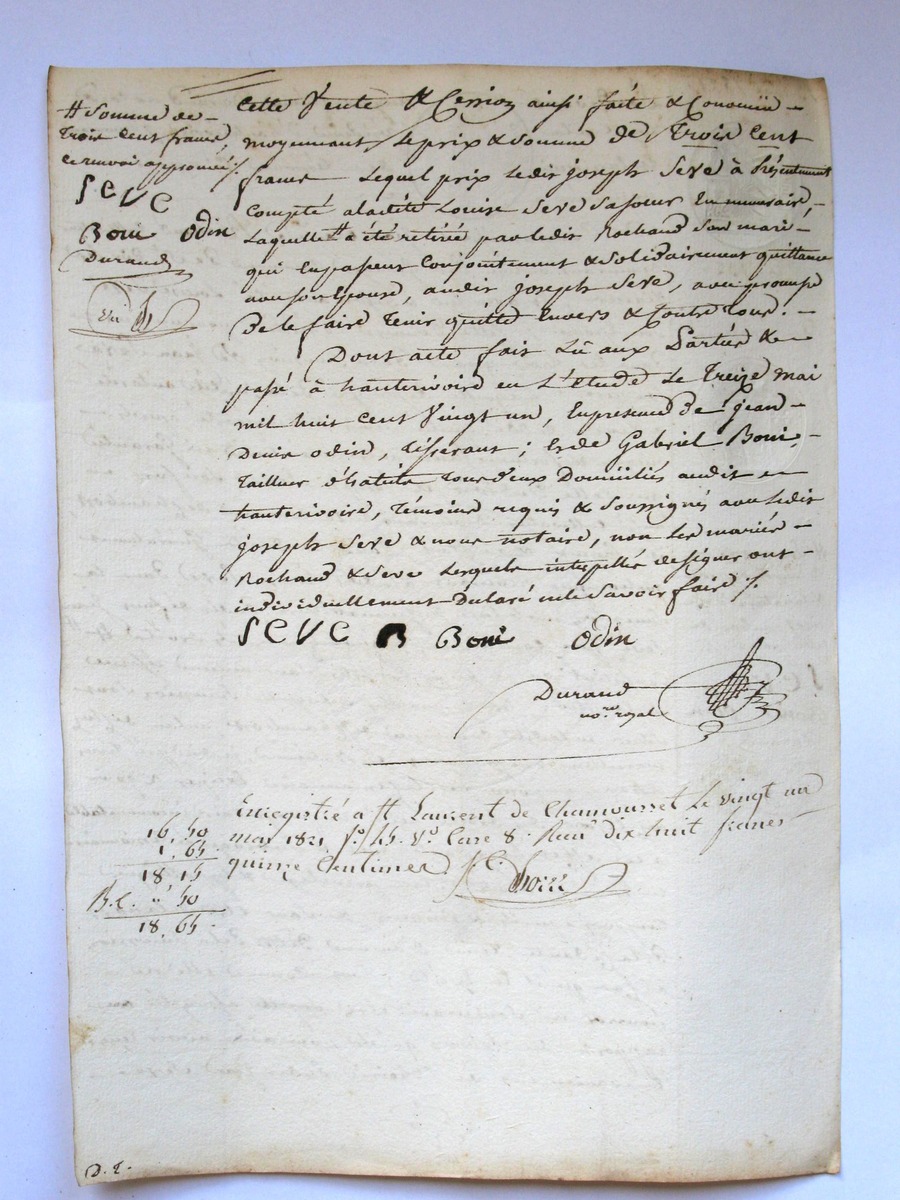 # Somme de
trois cent francs,
ce renvoi approuvé ./.
SEVE
Boni Odin
Durand
Cette Vente & Cession ainsi faite & Convenüe
moyennant le prix & Somme de Trois Cent
francs Lequel prix ledit joseph Seve à présentement
Compté a ladite Louise Seve Sa soeur En numeraire,
Laquelle # a été retirée par ledit Rochand Son mari
qui En passent Conjointement & Solidairement quittance
avec son Epouse, audit joseph Seve, avec promesse
De le faire Tenir quitte Envers & Contre Tous.
Dont acte fait Lû aux Parties &
passé à hauterivoire en L'étude Le Treize mai
mil huit cent Vingt un, En presence De jean
Denis odin, tisserant; Et de Gabriel Boni,
Tailleur d'habits Tous deux Domiciliés audit
hauterivoire, Témoins requis & Soussignés avec ledit
joseph Seve & nous notaire, non les mariés
Rochand & Seve Lesquels interpellés de signer ont
individuellement Déclaré ne le Savoir faire ./.
SEVE B Boni Odin
Durand
no.re royal
Enregistré a St Laurent de Chamousset le vingt un
mai 1821 fo. 45 Vo. Case 8. Recu dix huit francs
quinze Centimes
16,50
1,65
18,15
B.C. ",50
18,65
D. T.